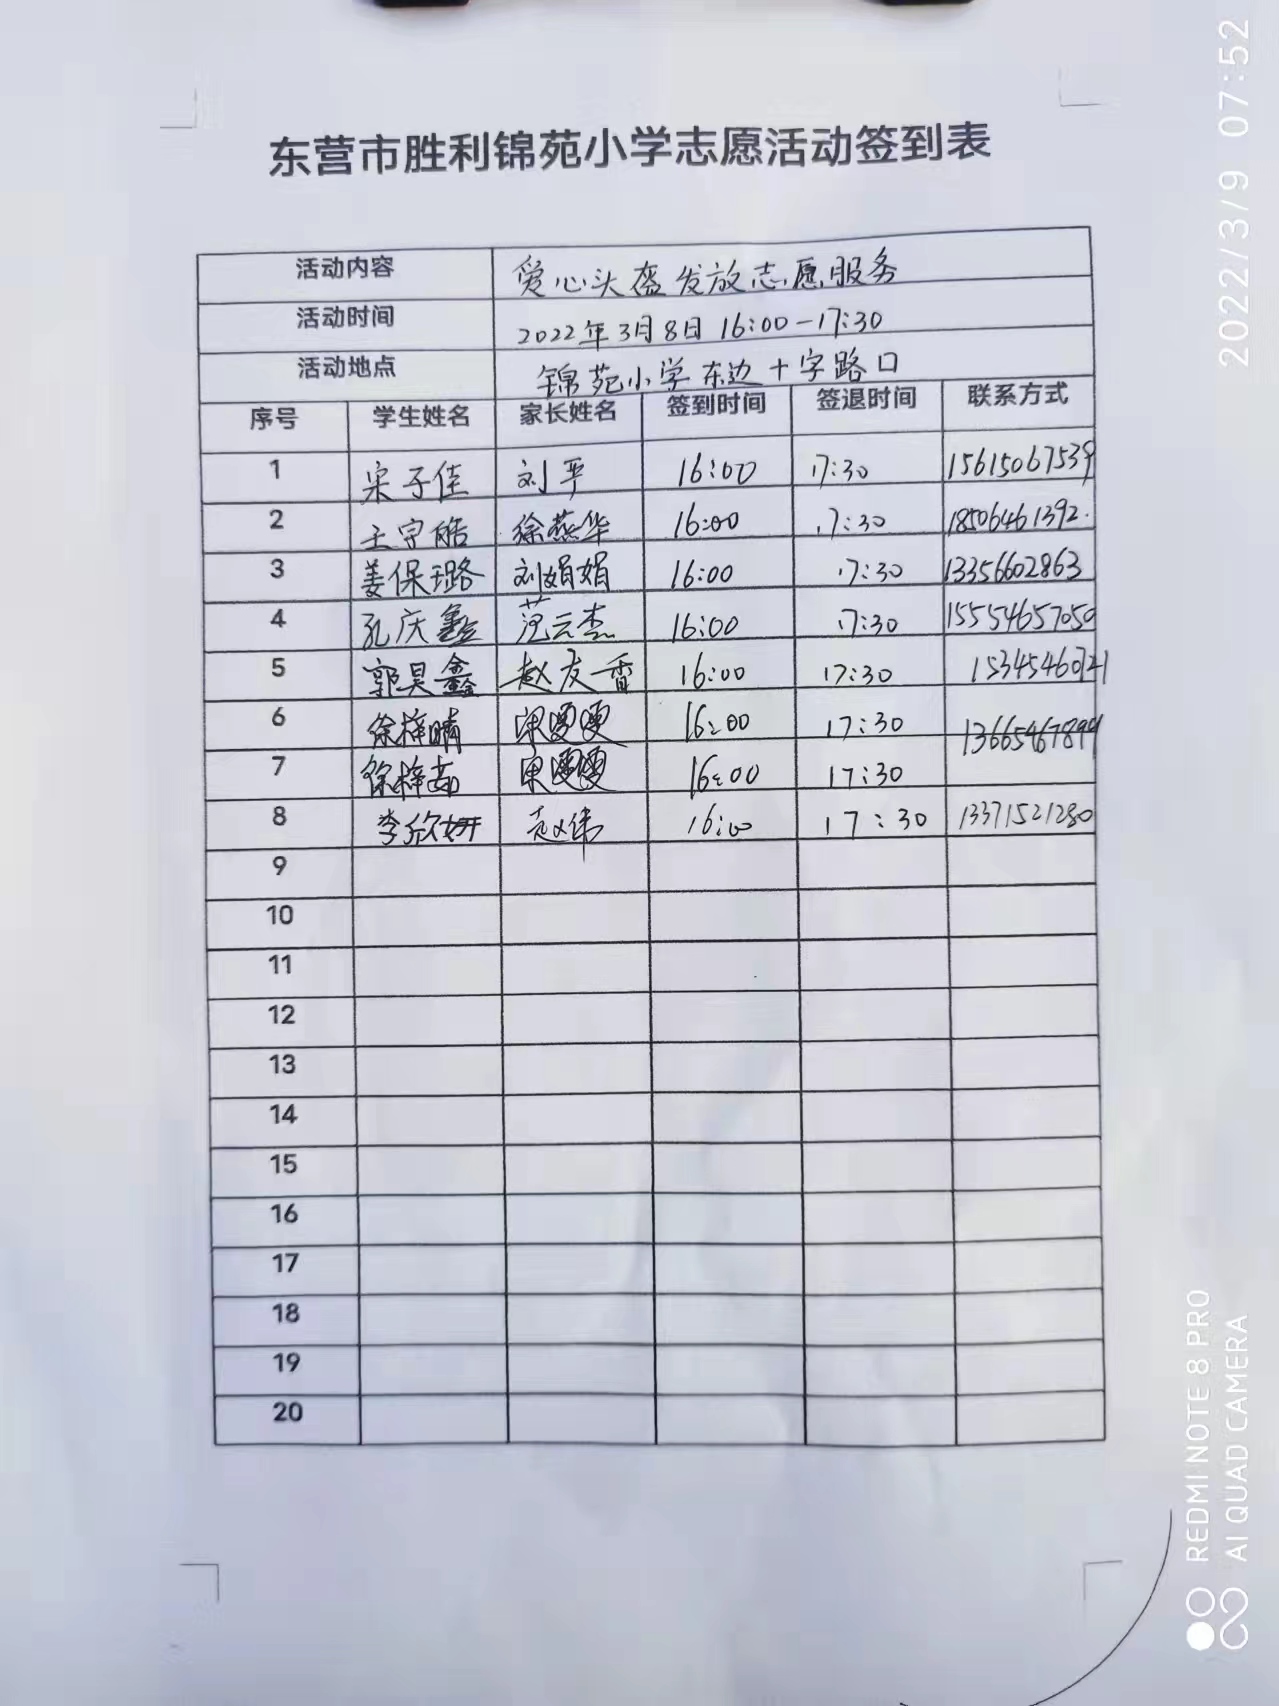 东营市胜利锦苑小学志愿活动签到表
活动内容 爱心头盔发放志愿服务
活动时间 2022年3月8日 16:00-17:30
活动地点 锦苑小学东边十字路口
序号 学生姓名 家长姓名 签到时间 签退时间 联系方式
1 宋子佳 刘平 16:00 17:30 15615067539
2 王宇皓 徐燕华 16:00 17:30 18506461392.
3 姜保璐 刘娟娟 16:00 17:30 13356602863
4 孔庆鑫 范云杰 16:00 17:30 15554657050
5 郭昊鑫 赵友香 16:00 17:30 15345460721
6 徐梓晴 16:00 17:30 13665467899
7 徐梓茹 16:00 17:30
8 李欣妍 赵伟 16:00 17:30 13371521280
9
10
11
12
13
14
15
16
17
18
19
20
2022/3/9 07:52
REDMI NOTE 8 PRO
AI QUAD CAMERA